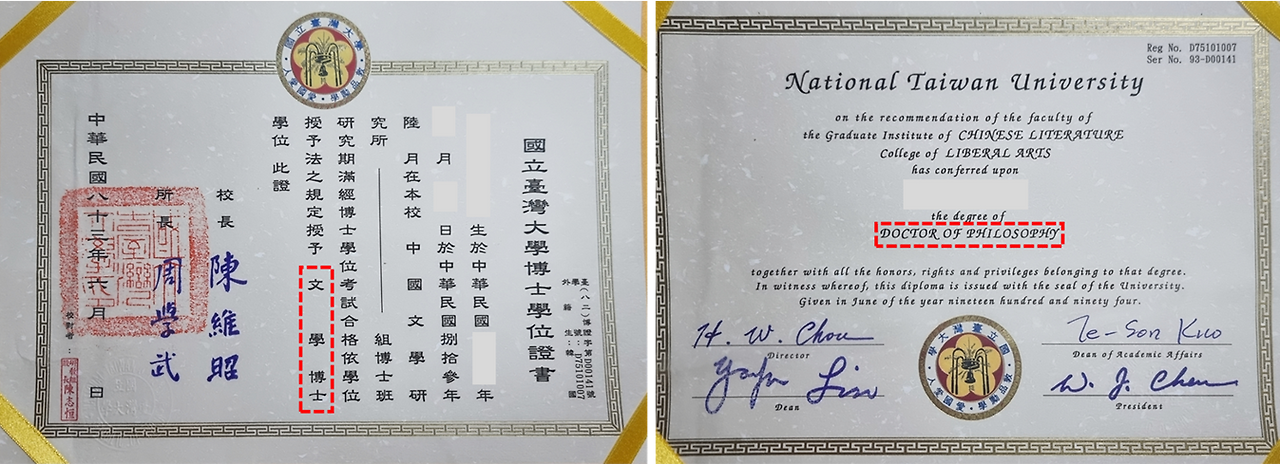 國立臺灣大學
敦品勵學・愛國愛人
國立臺灣大學博士學位證書
臺(八二)博證字第D00141號
學號：D75101007
外籍生：韓
生於中華民國 年
月 日於中華民國捌拾參年
陸 月在本校 中 國 文 學 研
究所 組博士班
研究期滿經博士學位考試合格依學位
授予法之規定授予 文 學 博士
學位 此證
校長 陳維昭
所長 周學武
中華民國八十三年六月 日
校對者：
陳志恒
Reg No. D75101007
Ser No. 93-D00141
National Taiwan University
on the recommendation of the faculty of
the Graduate Institute of CHINESE LITERATURE
College of LIBERAL ARTS
has conferred upon
the degree of
DOCTOR OF PHILOSOPHY
together with all the honors, rights and privileges belonging to that degree.
In witness whereof, this diploma is issued with the seal of the University.
Given in June of the year nineteen hundred and ninety four.
H. W. Chou
Director
Te-Son Kuo
Dean of Academic Affairs
Yaofu Lin
Dean
W. J. Chen
President
國立臺灣大學
敦品勵學・愛國愛人